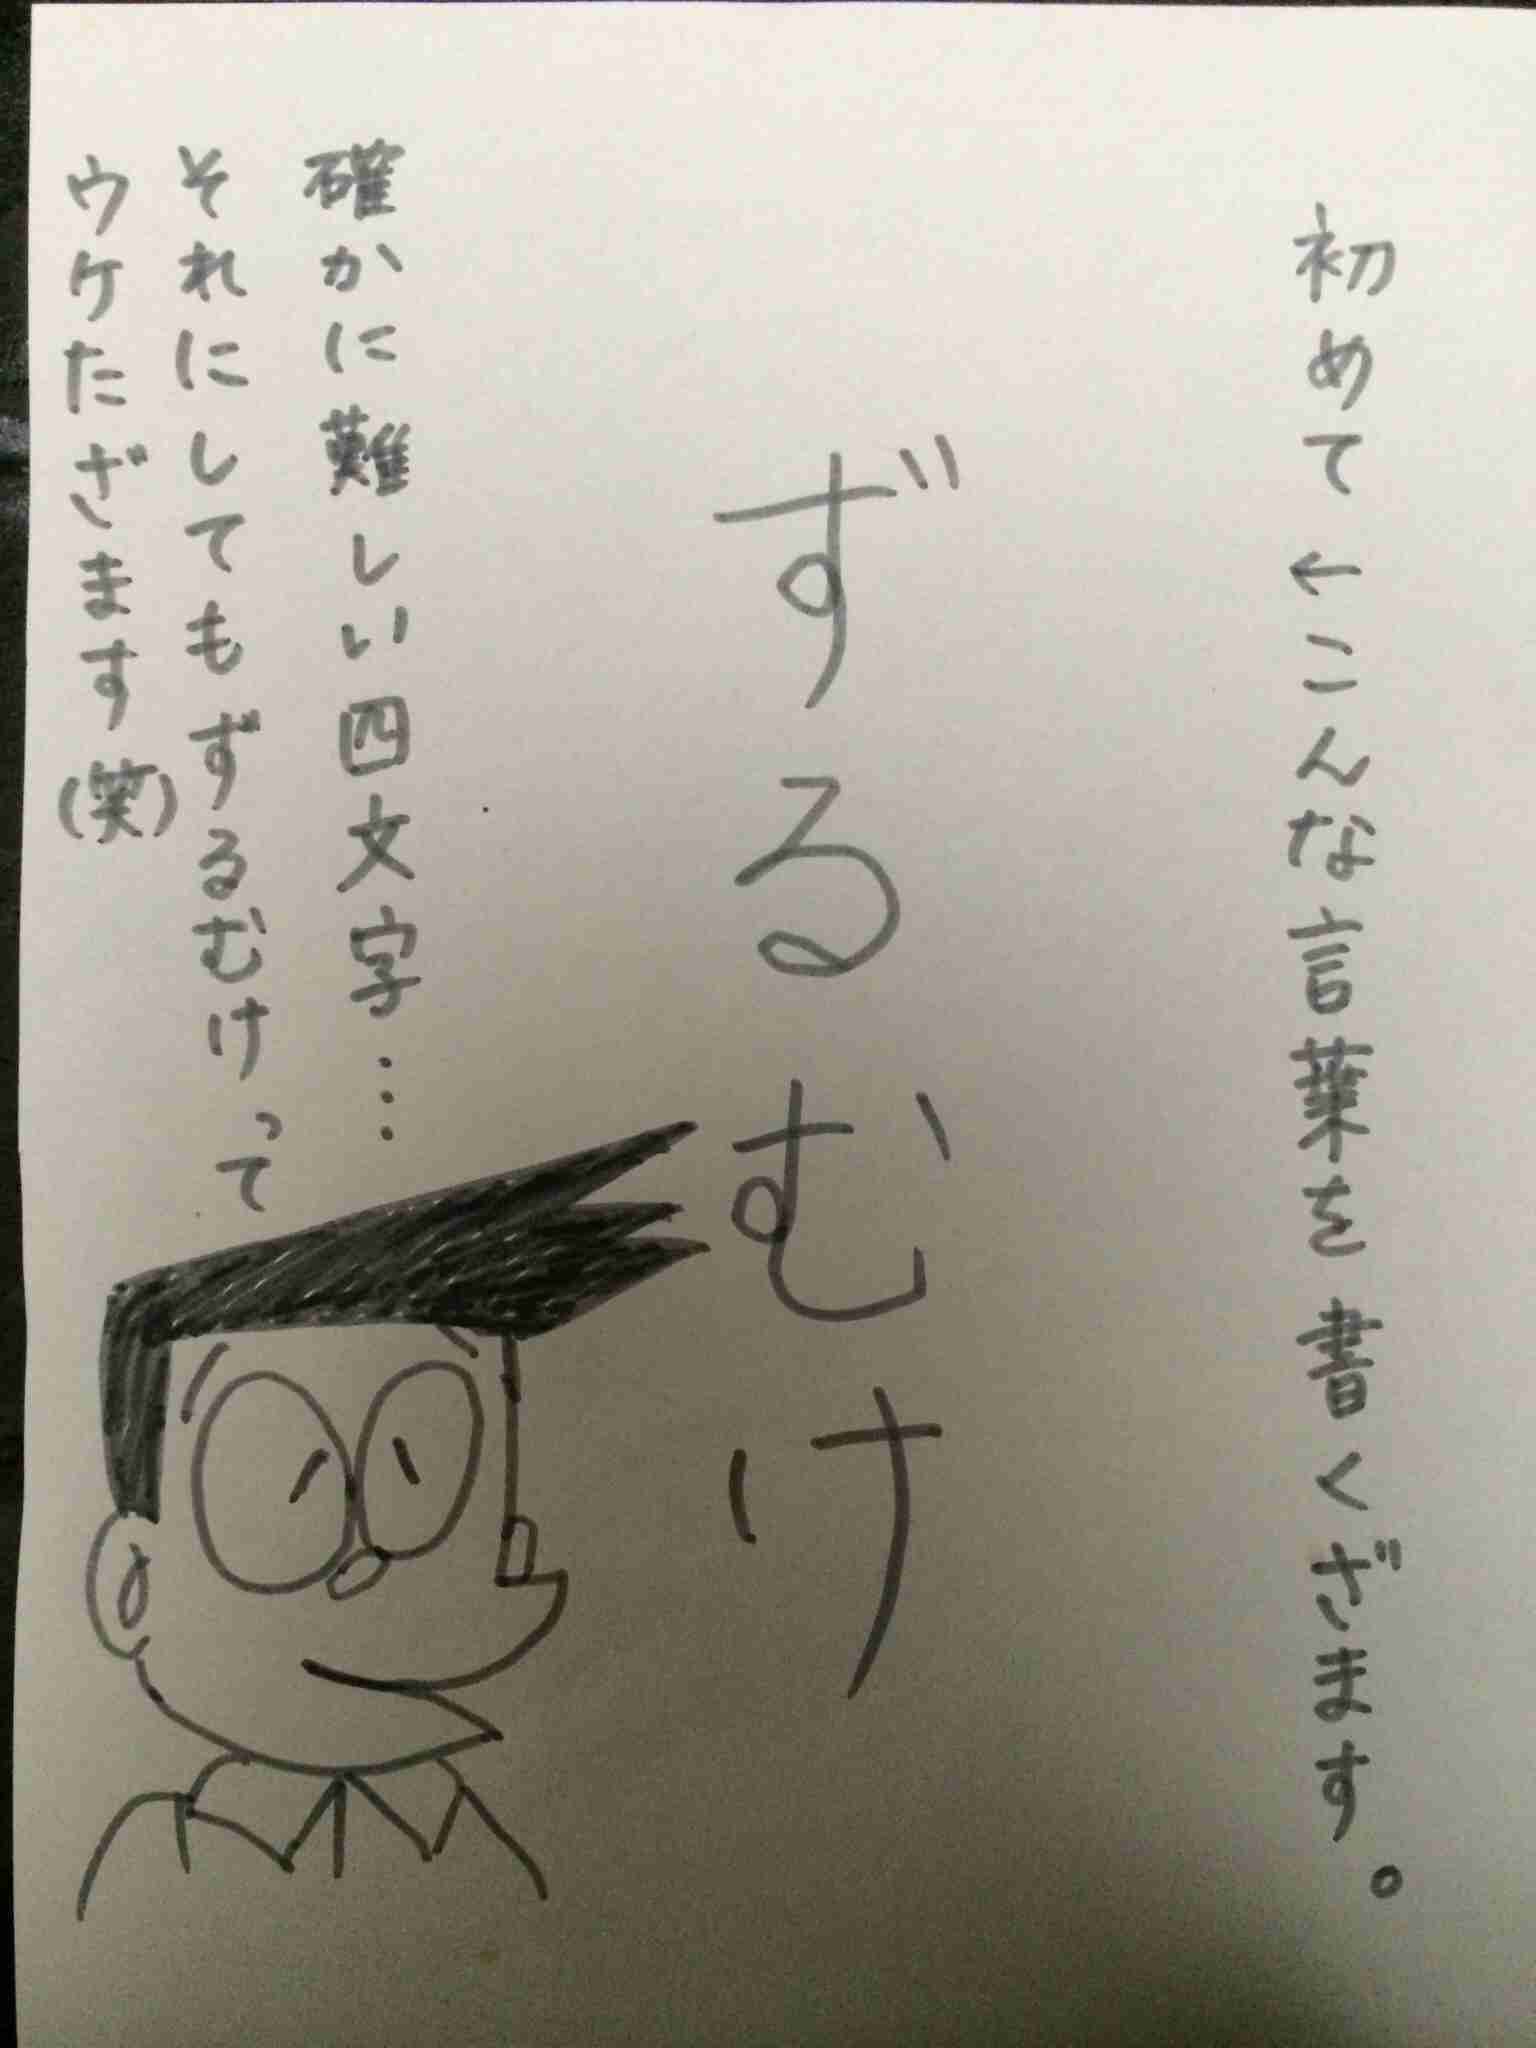 初めて←こんな言葉を書くざます。
ずるむけ
確かに難しい四文字…
それにしてもずるむけって
ウケたざます(笑)